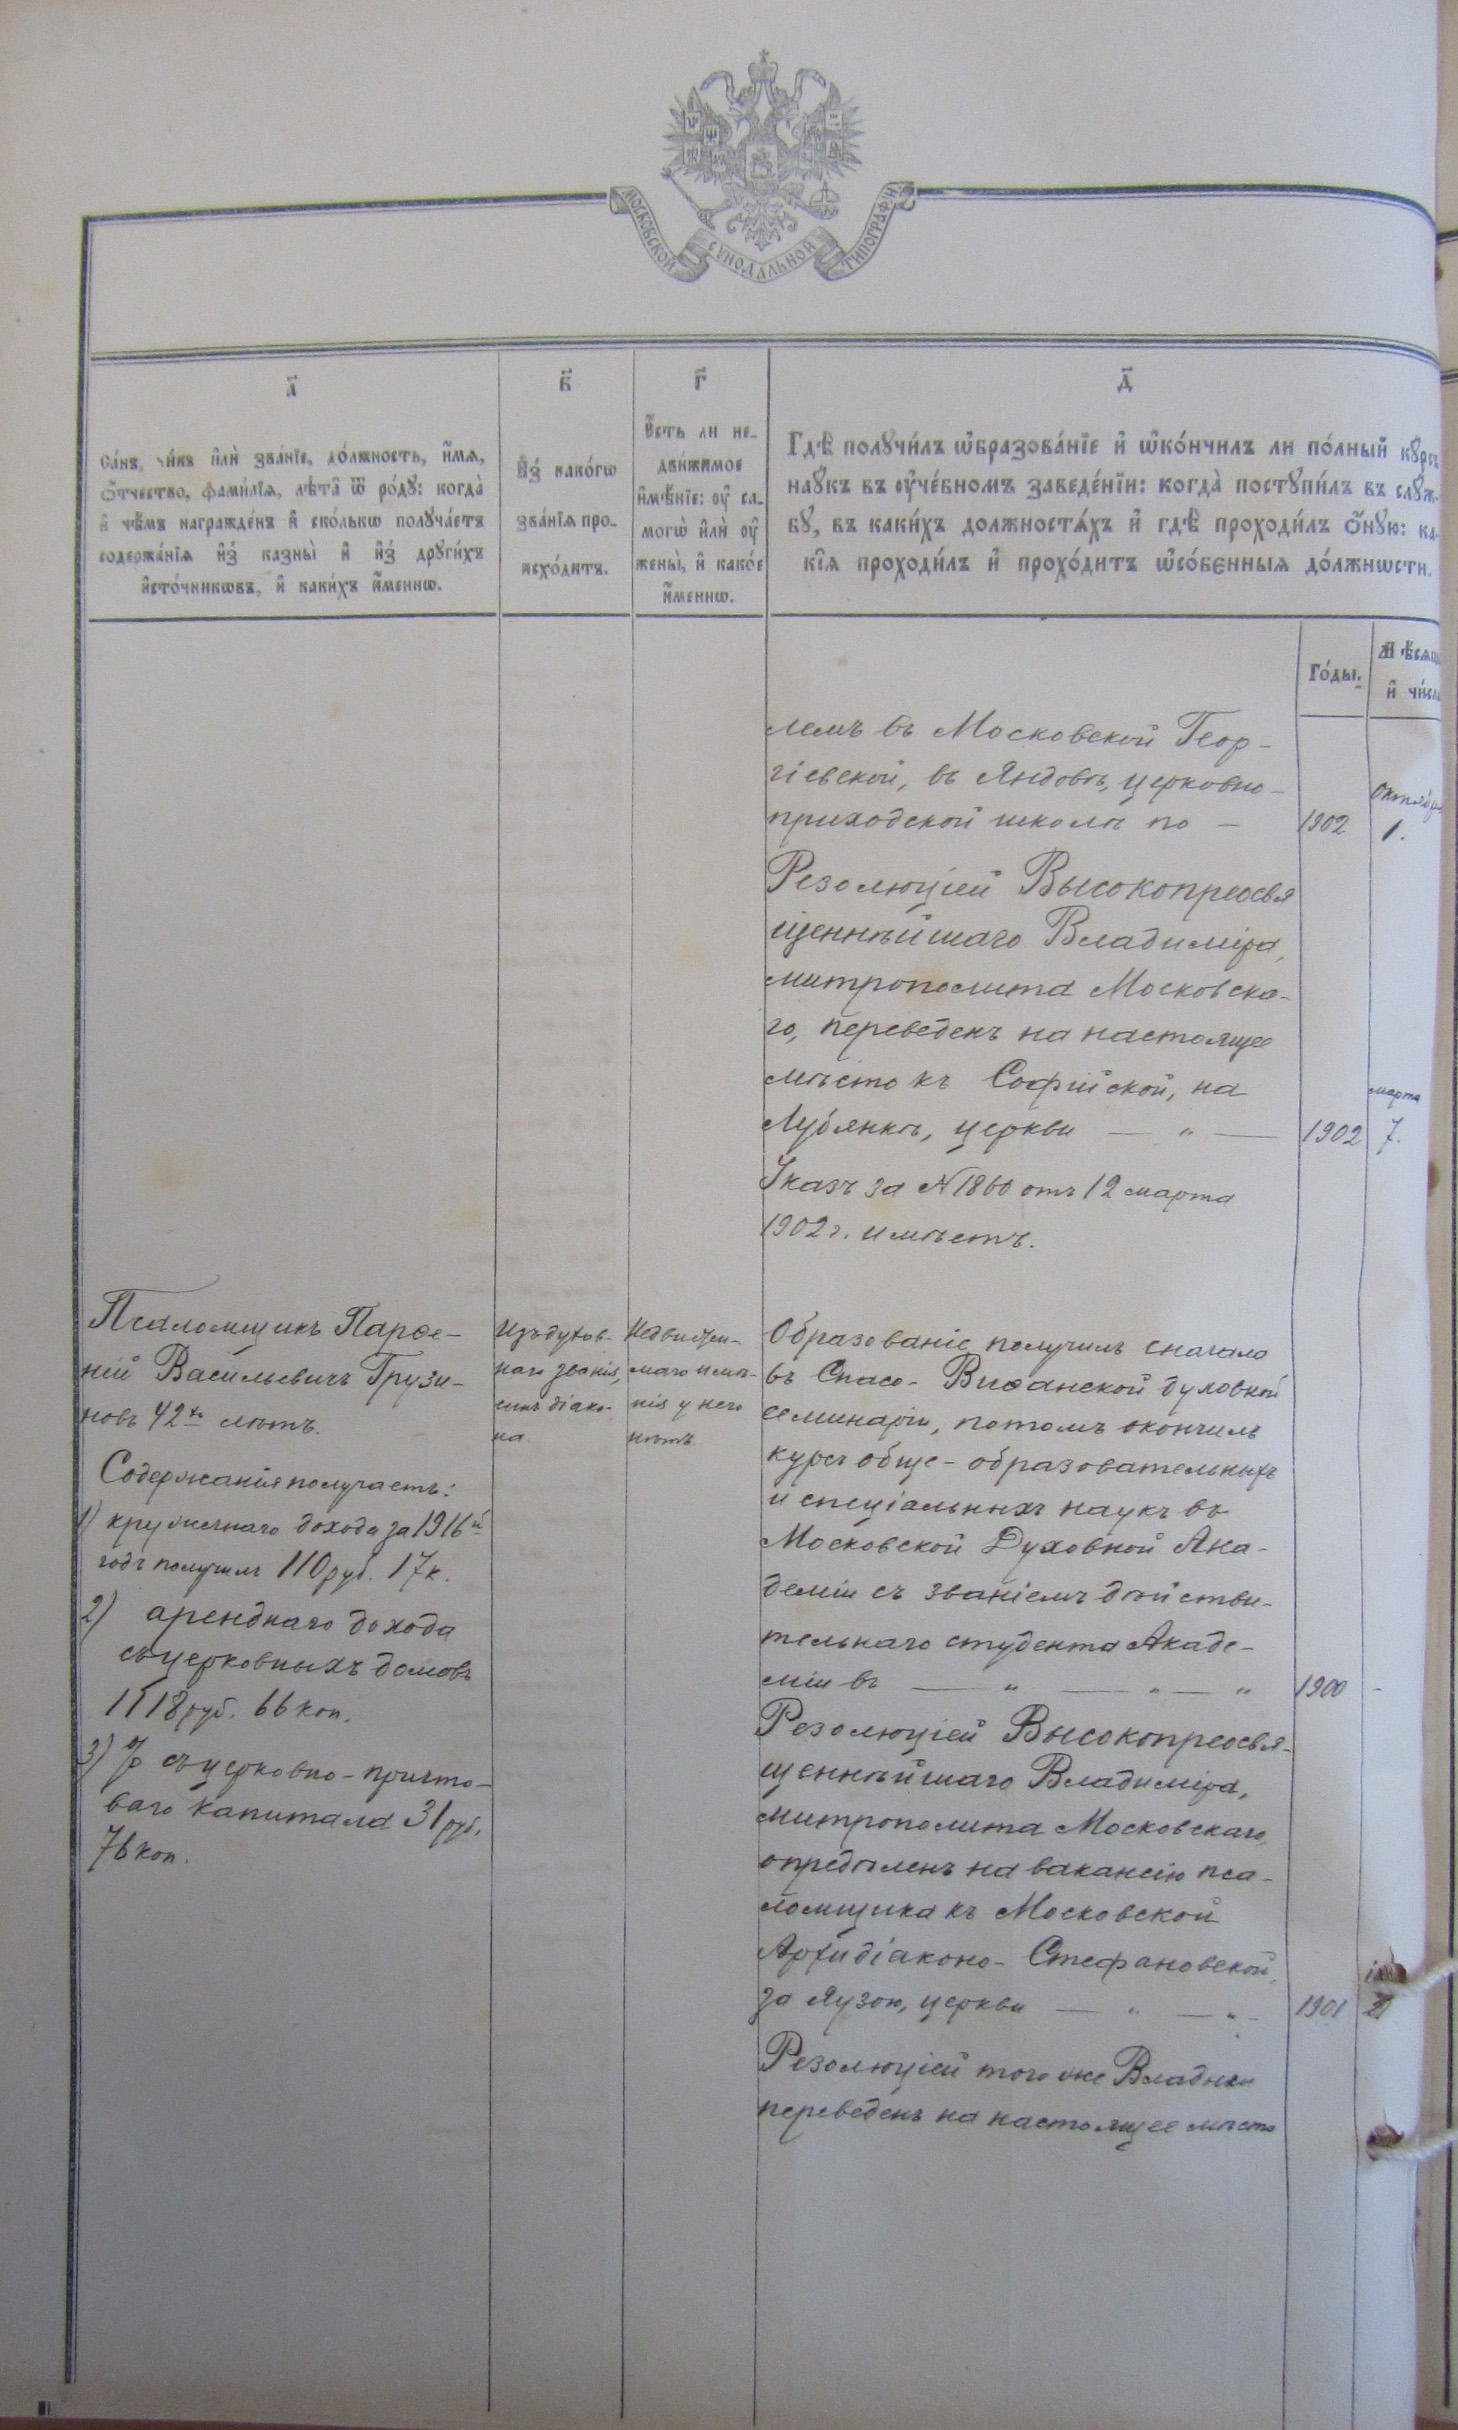 МОСКОВСКОЙ СѴНОДАЛЬНОЙ ТИПОГРАФІИ
а҃
Са́нъ, чи́нъ и҆лѝ зва́нїе, до́лжность, и҆́мѧ,
ѻ҆́тчество, фами́лїѧ, лѣ̑та ѿ ро́дꙋ: когда̀
и҆ чѣ́мъ награжде́нъ и҆ ско́лькѡ полꙋча́етъ
содержа́нїѧ и҆з̾ казны̀ и҆ и҆з̾ дрꙋги́хъ
и҆сто́чникѡвъ, и҆ каки́хъ и҆́меннѡ.
в҃
И҆з̾ како́гѡ
зва́нїѧ про-
исхо́дитъ.
г҃
Е҆́сть ли не-
дви́жимое
и҆мѣ́нїе: ᲂу҆ са-
могѡ̀ и҆лѝ ᲂу҆
жены̀, и҆ како́е
и҆́меннѡ.
д҃
Гдѣ̀ полꙋчи́лъ ѡ҆бразова́нїе и҆ ѡ҆ко́нчилъ ли по́лный кꙋ́рсъ
наꙋ́къ въ ᲂу҆че́бномъ заведе́нїи: когда̀ постꙋпи́лъ въ слꙋ́ж-
бꙋ, въ каки́хъ должностѧ́хъ и҆ гдѣ̀ проходи́лъ ѻ҆́нꙋю: ка-
кі́ѧ проходи́лъ и҆ прохо́дитъ ѡ҆со́бенныѧ до́лжнѡсти.
Го́ды.
Мѣ́сѧцы
и҆ чи́сла
лемъ въ Московской Геор-
гіевской, въ Яндовѣ, церковно-
приходской школѣ по — 1902 октября 1.
Резолюціей Высокопреосвя
щеннѣйшаго Владиміра,
митрополита Московска-
го, переведенъ на настоящее
мѣсто къ Софійской, на
Лубянкѣ, церкви — „ — 1902 марта 7.
Указъ за № 1860 отъ 12 марта
1902 г. имѣетъ.
Псаломщикъ Парѳе-
ній Васильевичъ Грузи-
новъ 42хъ лѣтъ.
Содержанія получаетъ:
1) кружечнаго дохода за 1916й
годъ получилъ 110 руб. 17 к.
2) аренднаго дохода
съ церковныхъ домовъ
1118 руб. 66 коп.
3) % съ церковно-причто-
ваго капитала 31 руб.
76 коп.
Изъ духов-
наго званія,
сынъ діако-
на.
Недвижи-
маго имѣ-
нія у него
нѣтъ.
Образованіе получилъ сначала
въ Спасо-Виѳанской духовной
семинаріи, потомъ окончилъ
курсъ обще-образовательныхъ
и спеціальныхъ наукъ въ
Московской Духовной Ака-
деміи съ званіемъ дѣйстви-
тельнаго студента Акаде-
міи въ — „ — „ — „ 1900 -
Резолюціей Высокопреосвя-
щеннѣйшаго Владиміра,
митрополита Московскаго,
опредѣленъ на вакансію пса-
ломщика къ Московской
Архидіаконо-Стефановской,
за Яузою, церкви — „ — „ - 1901
Резолюціей того же Владыки
переведенъ на настоящее мѣсто